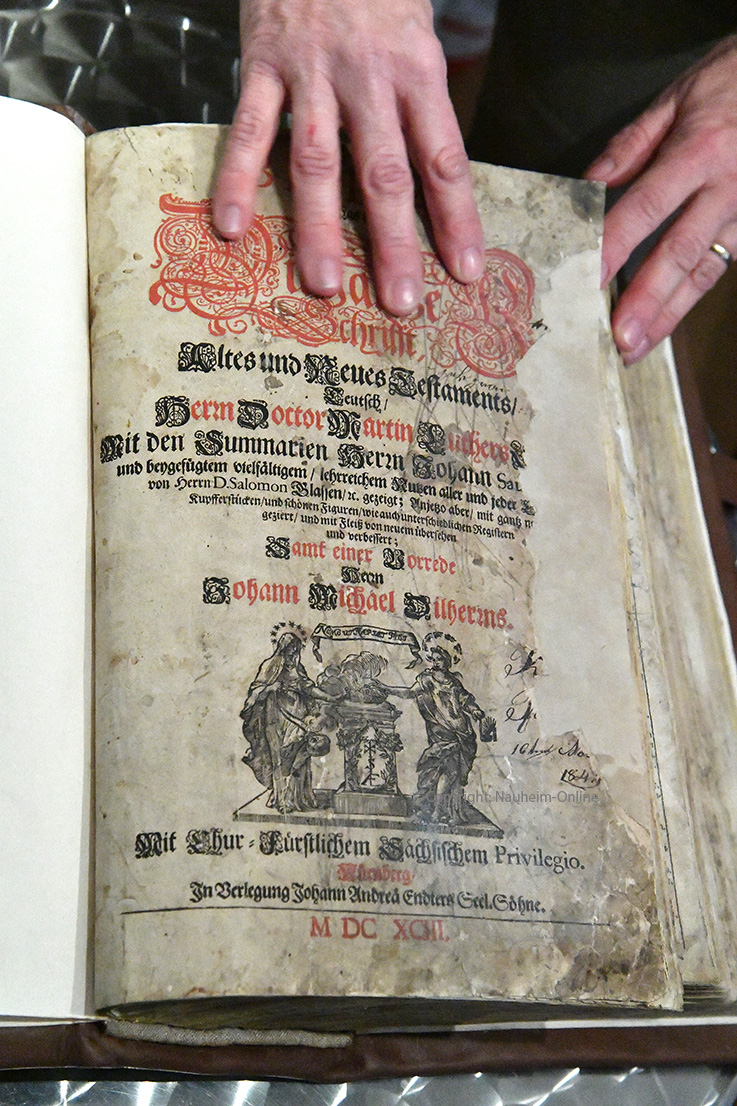 Schrifft,
Altes und Neues Testaments/
Teutsch/
Herrn Doctor Martin Luthers
Mit den Summarien Herrn Johann Sau
und beygefügtem vielfältigem / lehrreichem Nutzen aller und jeder
von Herrn D. Salomon Glassen/ ꝛc. gezeigt; Anjetzo aber/ mit gantz n
Kupfferstücken/ und schönen Figuren/ wie auch unterschiedlichen Registern
geziert/ und mit Fleiß von neuem übersehen
und verbessert;
Samt einer Vorrede
Herrn
Johann Michael Dilherrns.
1844
Copyright: Nauheim-Online
Mit Chur-Fürstlichem Sächsischem Privilegio.
Nürnberg/
In Verlegung Johann Andreä Endters Seel. Söhne.
M DC XCIII.